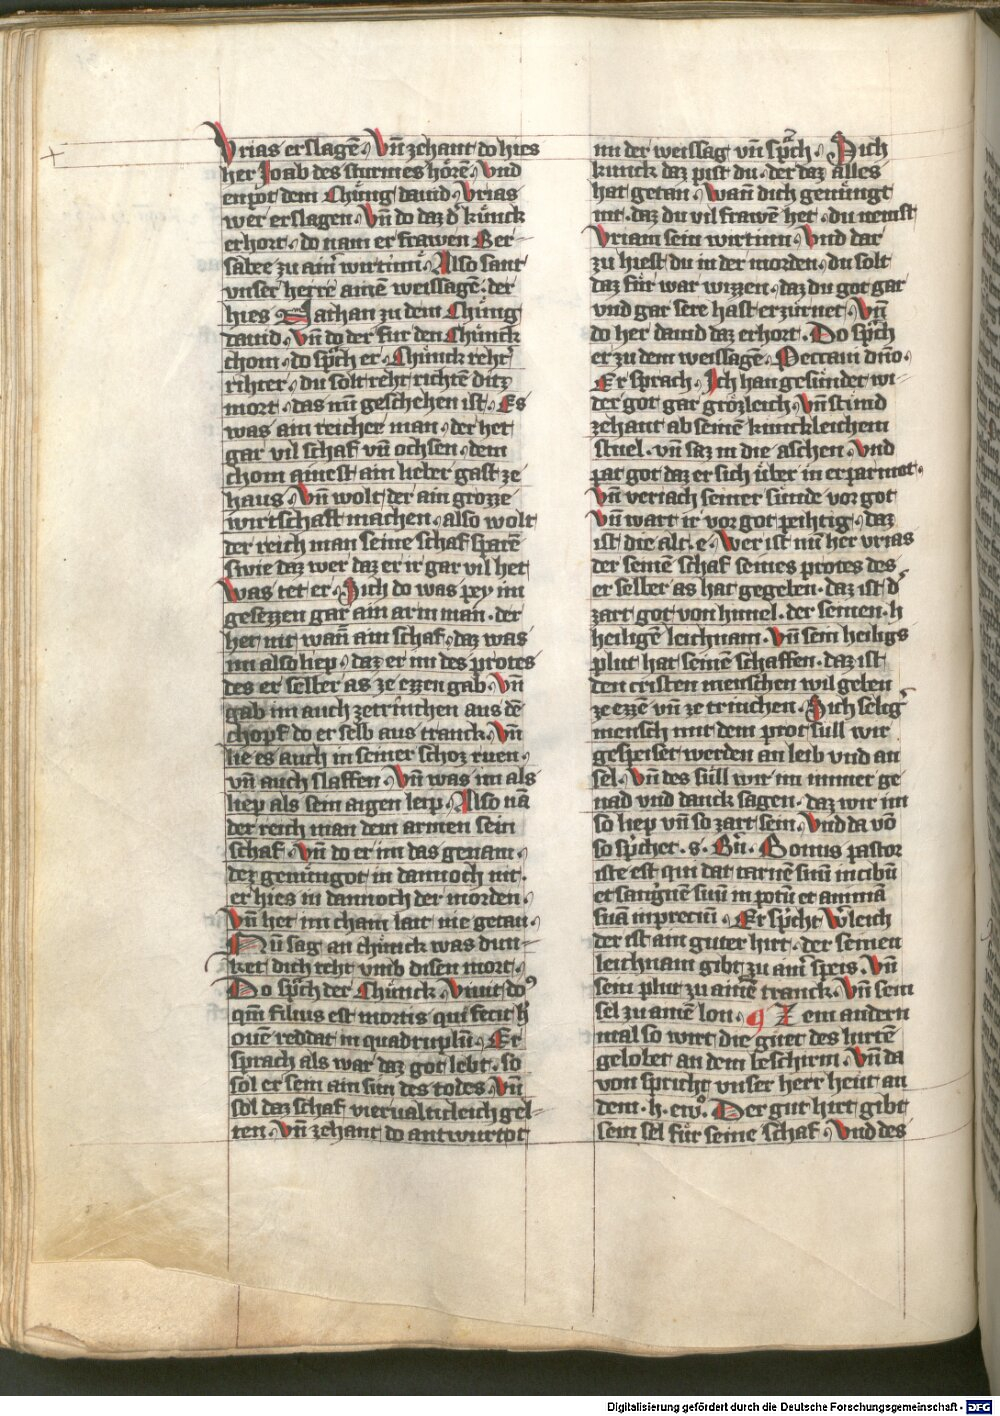 Vrias erslagē. Vn̄ zehant do hies
her Joab des sturmes hörē. Vnd
enpot dem Chu̍ng dauid. Vrias
wer erslagen. Vn̄ do daz d' ku̍nck
erhort. do nam er frawen Ber-
sabee zu ain' wirtinn. Also sant
vnser herre ainē weissagē. der
hies Nathan zu dem Chu̍ng
dauid. Vn̄ do der fur den Chu̍nck
chom. do sp̄ch er. Chu̍nck reht'
rihter. du solt reht richtē ditz
mort. das nu̅ geschehen ist. Es
was ain reicher man. der het
gar vil schaf vn̄ ochsen. dem
chom ainest ain lieber gast ze
haus. Vn̄ wolt der ain grozze
wirtschaft machen. also wolt
der reich man seine schaf sparē
swie daz wer daz er ir gar vil het
Was tet er. Sich do was pey im
gesezzen gar ain arm man. der
het nit wan̄ ain schaf. daz was
im also liep. daz er im des protes
des er selber as ze ezzen gab. Vn̄
gab im auch ze trinchen aus dē
chopf do er selb aus tranck. Vn̄
lie es auch in seiner schoz ruen.
vn̄ auch slaffen. Vn̄ was im als
liep als sein aigen leip. Also nā
der reich man dem armen sein
schaf. Vn̄ do er im das genam.
dez genu̍ngot in dannoch nit.
er hies in dannoch der morden.
Vn̄ het im chain lait nie getan.
Nu̅ sag an chu̍nck was dun-
ket dich reht vmb disen mort.
Do sp̄ch der Chu̍nck. Viuit do⁹
qm̄ filius est mortis qui fecit h'
ouē reddat in quadruplū. Er
sprach als war daz got lebt. so
sol er sein ain sun des todes. Vn̄
sol daz schaf viervalticleich gel-
ten. Vn̄ zehant do antwurtot
im der weissag vn̄ sp̄ch. Sich
kunck daz pist du. der daz alles
hat getan. Wan̄ dich genu̍ngt
nit. daz du vil frawē het. du nemst
Vriam sein wirtinn. Vnd dar
zu hiest du in der morden. du solt
daz fu̍r war wizzen. daz du got gar
vnd gar sere hast erzu̍rnet. Vn̄
do her dauid daz erhort. Do sp̄ch
er zu dem weissagē. Peccaui dn̄o.
Er sprach. Ich han gesu̍ndet wi-
der got gar grözleich. Vn̄ stund
zehant ab seinē kuncklichem
stuel. vn̄ saz in die aschen. Vnd
pat got daz er sich u̍ber in erparmet.
Vn̄ veriach seiner su̍nde vor got
Vn̄ wart ir vor got peihtig. daz
ist die alt. e. Wer ist nu̅ her vrias
der seinē schaf seines protes des
er selber as hat gegeben. daz ist d'
zart got von himel. der seinen. h
heiligē leichnam. Vn̄ sein heiligs
plut hat seinē schaffen. daz ist
den cristen menschen wil geben
ze ezzē vn̄ ze trinchen. Sich selig'
mensch mit dem prot sull wir
gespeiset werden an leib vnd an
sel. Vn̄ des su̍ll wir im immer ge
nad vnd danck sagen. daz wir im
so liep vn̄ so zart sein. Vnd da vō
so sp̄chet. s. Bn̄. Bonus pastor
iste est qui dat carnē suū in cibū
et sang'nē suū in potū et animā
suā in preciū. Er sp̄cht W'leich
der ist ain guter hirt. der seinen
leichnam gibt zu ain' speis. Vn̄
sein plut zu ainē tranck. Vn̄ sein
sel zu ainē lon. Zem andern
mal so wirt die gu̍t des hirtē
gelobet an dem beschirm. Vn̄ da
von spricht vnser herr heut an
dem. h. ew⁹. Der gut hirt gibt
sein sel fu̍r seine schaf. Vnd des
Digitalisierung gefördert durch die Deutsche Forschungsgemeinschaft - DFG